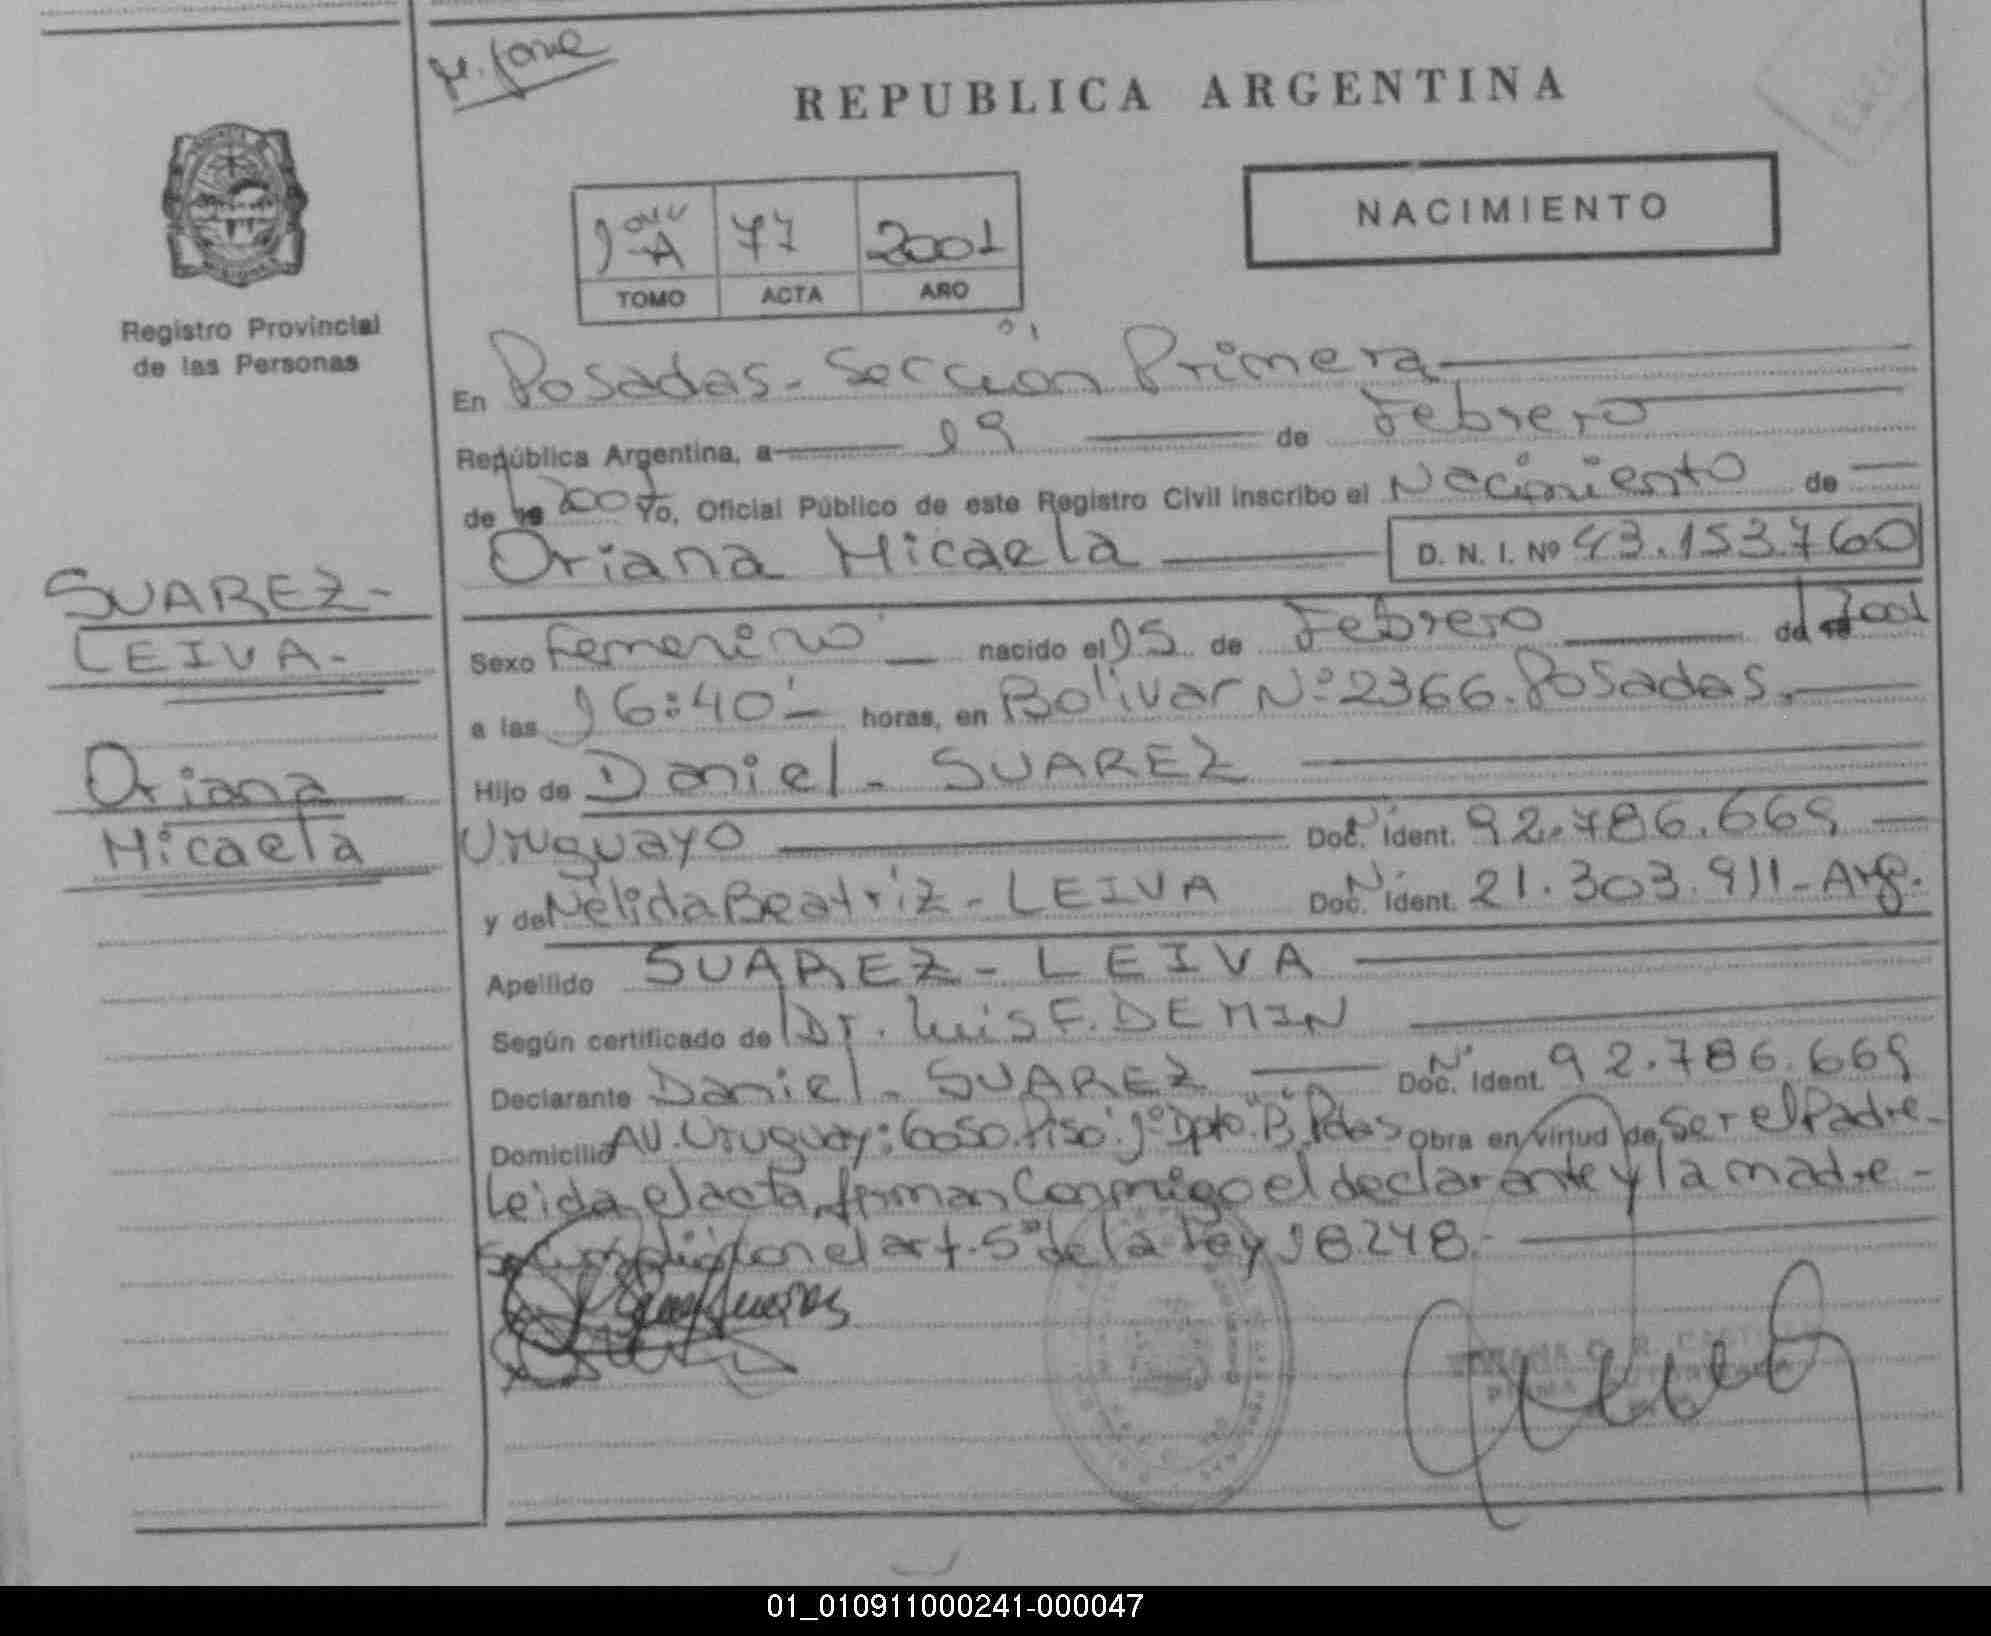 REPUBLICA ARGENTINA
NACIMIENTO
77 2001
TOMO ACTA AÑO
Registro Provincial
de las Personas
SUAREZ-
LEIVA-
Oriana
Micaela
En Posadas-Sección Primera
República Argentina, a 19 de Febrero
de 2001 Yo, Oficial Público de este Registro Civil inscribo el Nacimiento de
Oriana Micaela D. N. I. Nº 43.153.760
Sexo Femenino nacido el 15 de Febrero de 2001
a las 16:40'- horas, en Bolivar Nº 2366. Posadas.
Hijo de Daniel - SUAREZ
Uruguayo Doc. Ident. 92.786.669
y de Nélida Beatriz - LEIVA Doc. Ident. 21.303.911-Arg.
Apellido SUAREZ - LEIVA
Según certificado de Dr. Luis F. DEMIN
Declarante Daniel - SUAREZ Doc. Ident. 92.786.669
Domicilio AV. Uruguay: 6050. Piso: 1º Dpto "B" Pdas Obra en virtud de Ser el Padre-
Leida el acta, firman Conmigo el declarante y la madre-
el art. 5º de la Ley 18.248.-
01_010911000241-000047